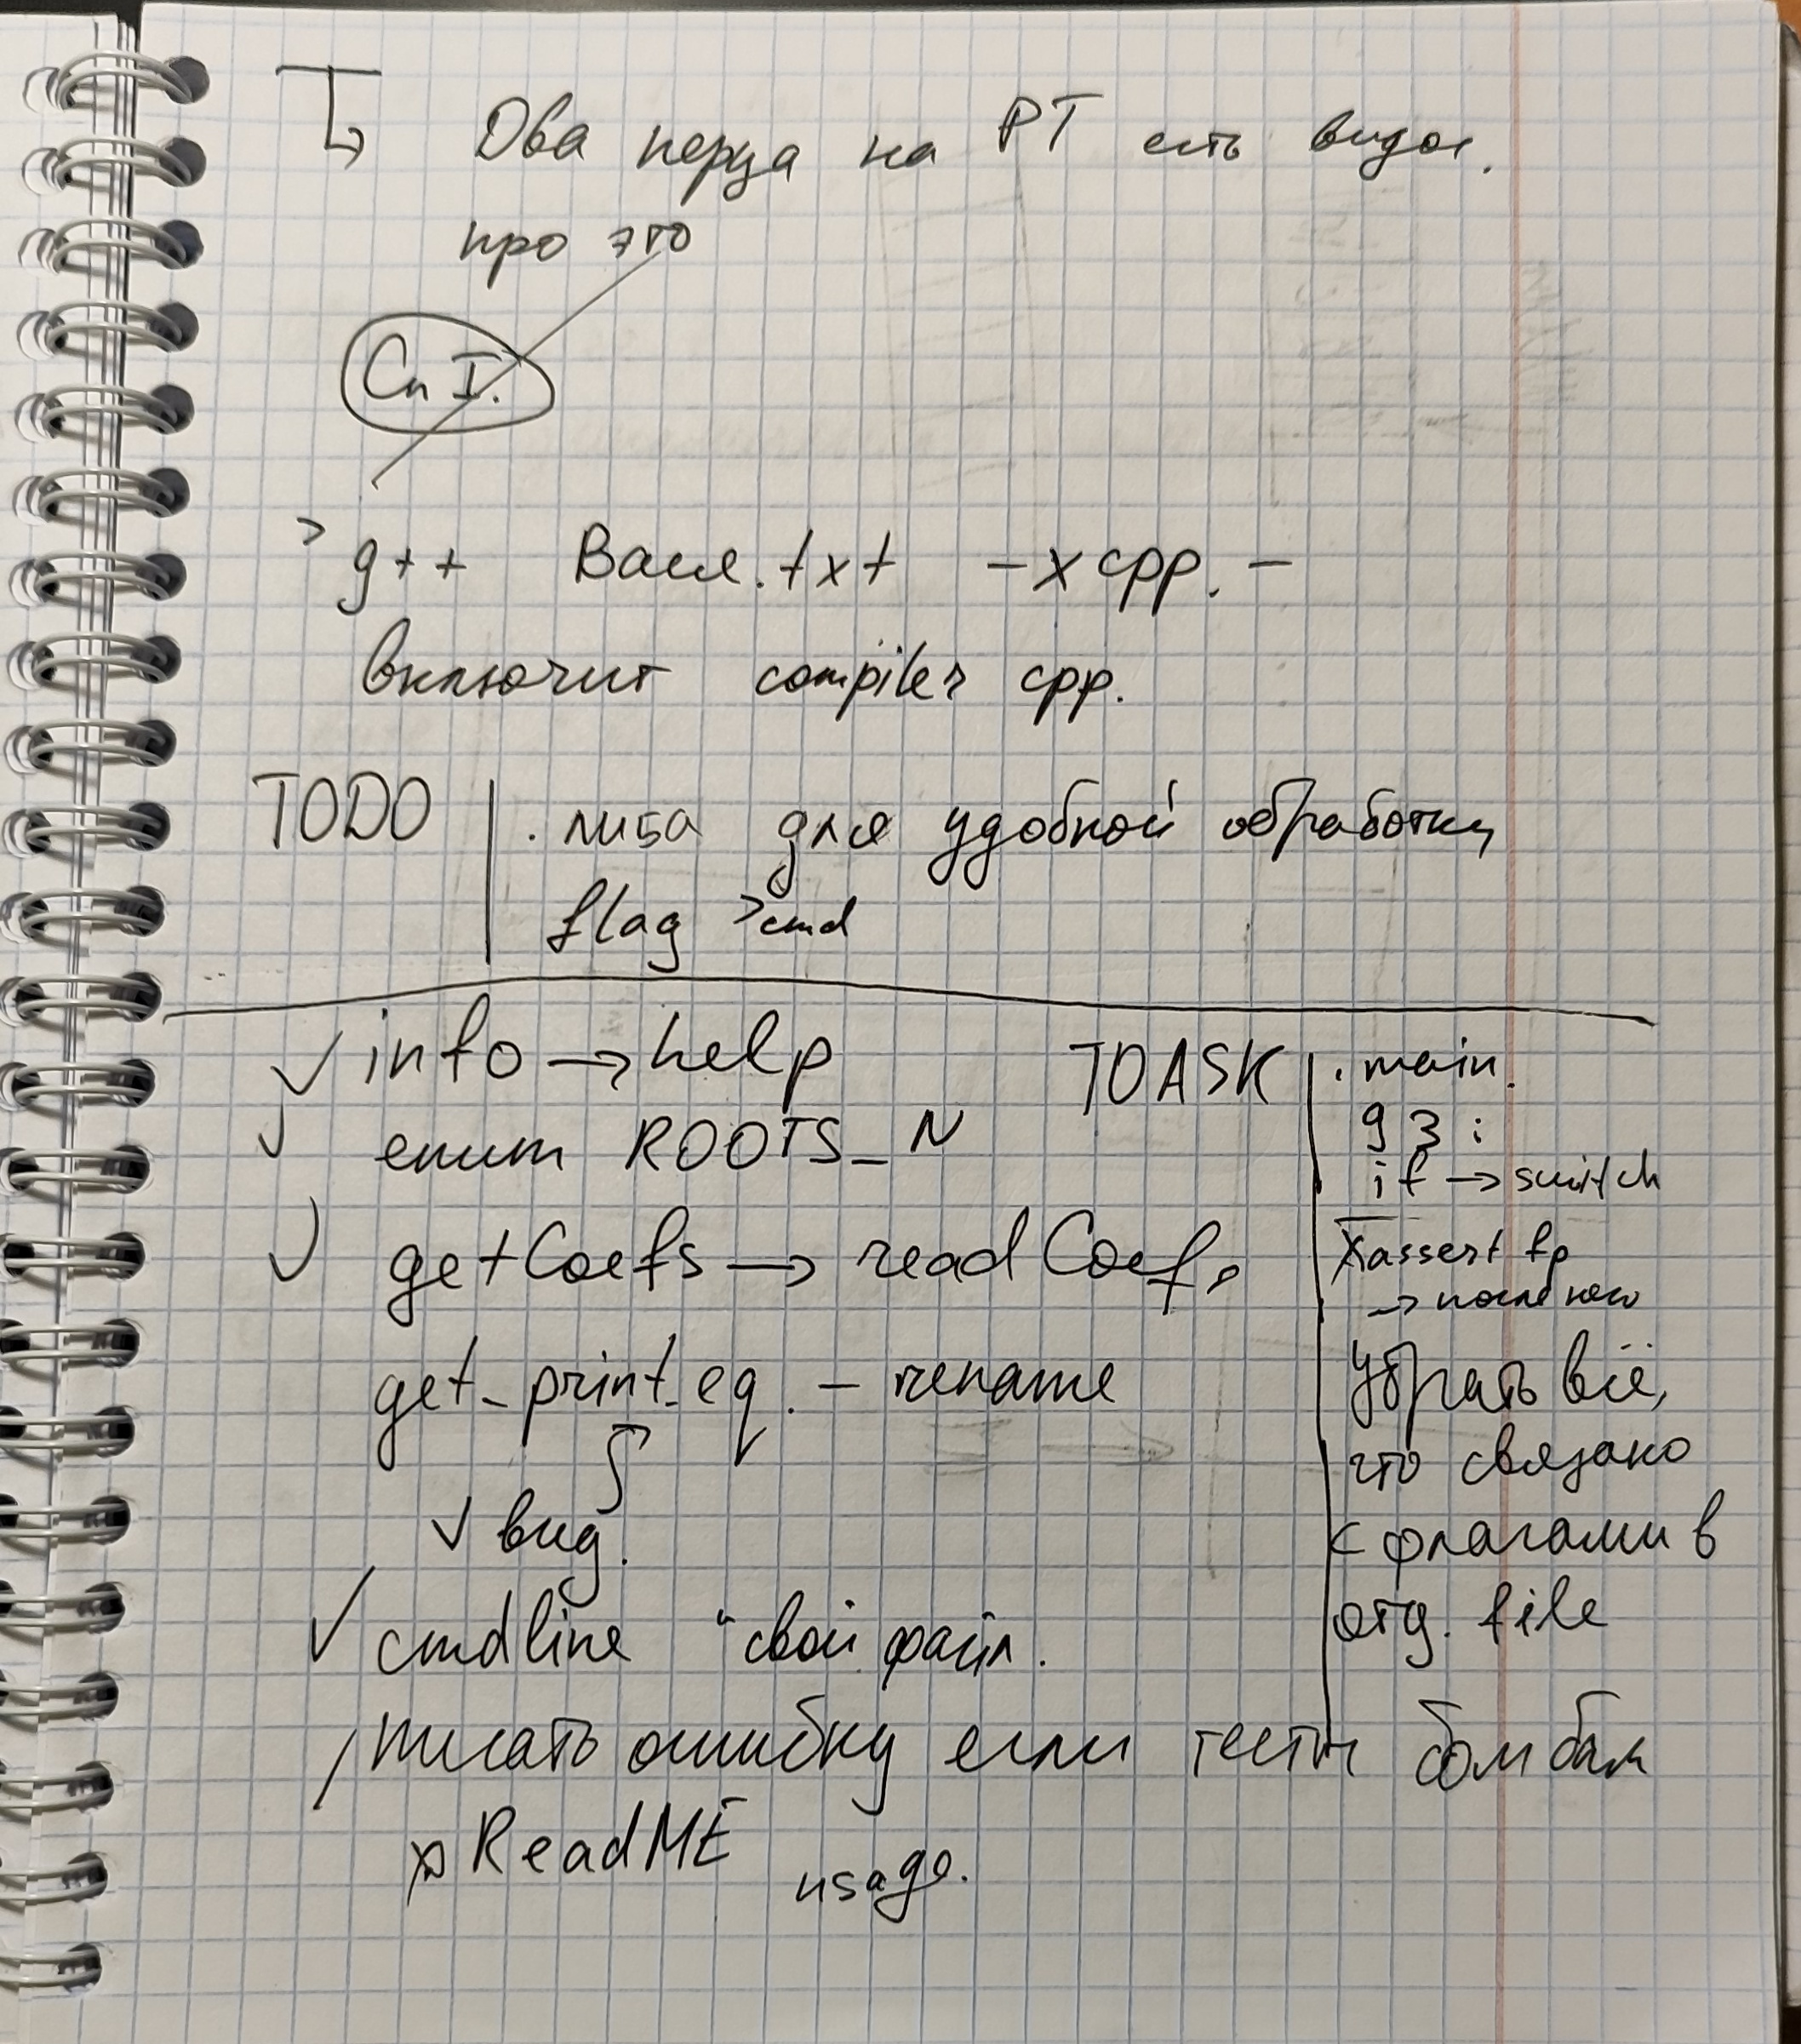 Два перца на PT есть видос.
про это
Сп I.
> g++ Вася.txt -x cpp. -
включит compiler cpp.
TODO | . либа для удобной обработки
flag >cmd
✓ info → help
✓ enum ROOTS_N
✓ getCoefs → readCoefs
get_print_eq. - rename
✓ вид.
✓ cmdline "свой файл.
писать ошибку если тесты бомбят
ReadME usage.
TOASK | . main.
93 :
if → switch
assert fp
→ после него
Убрать всё,
что связано
с флагами в
отд. file